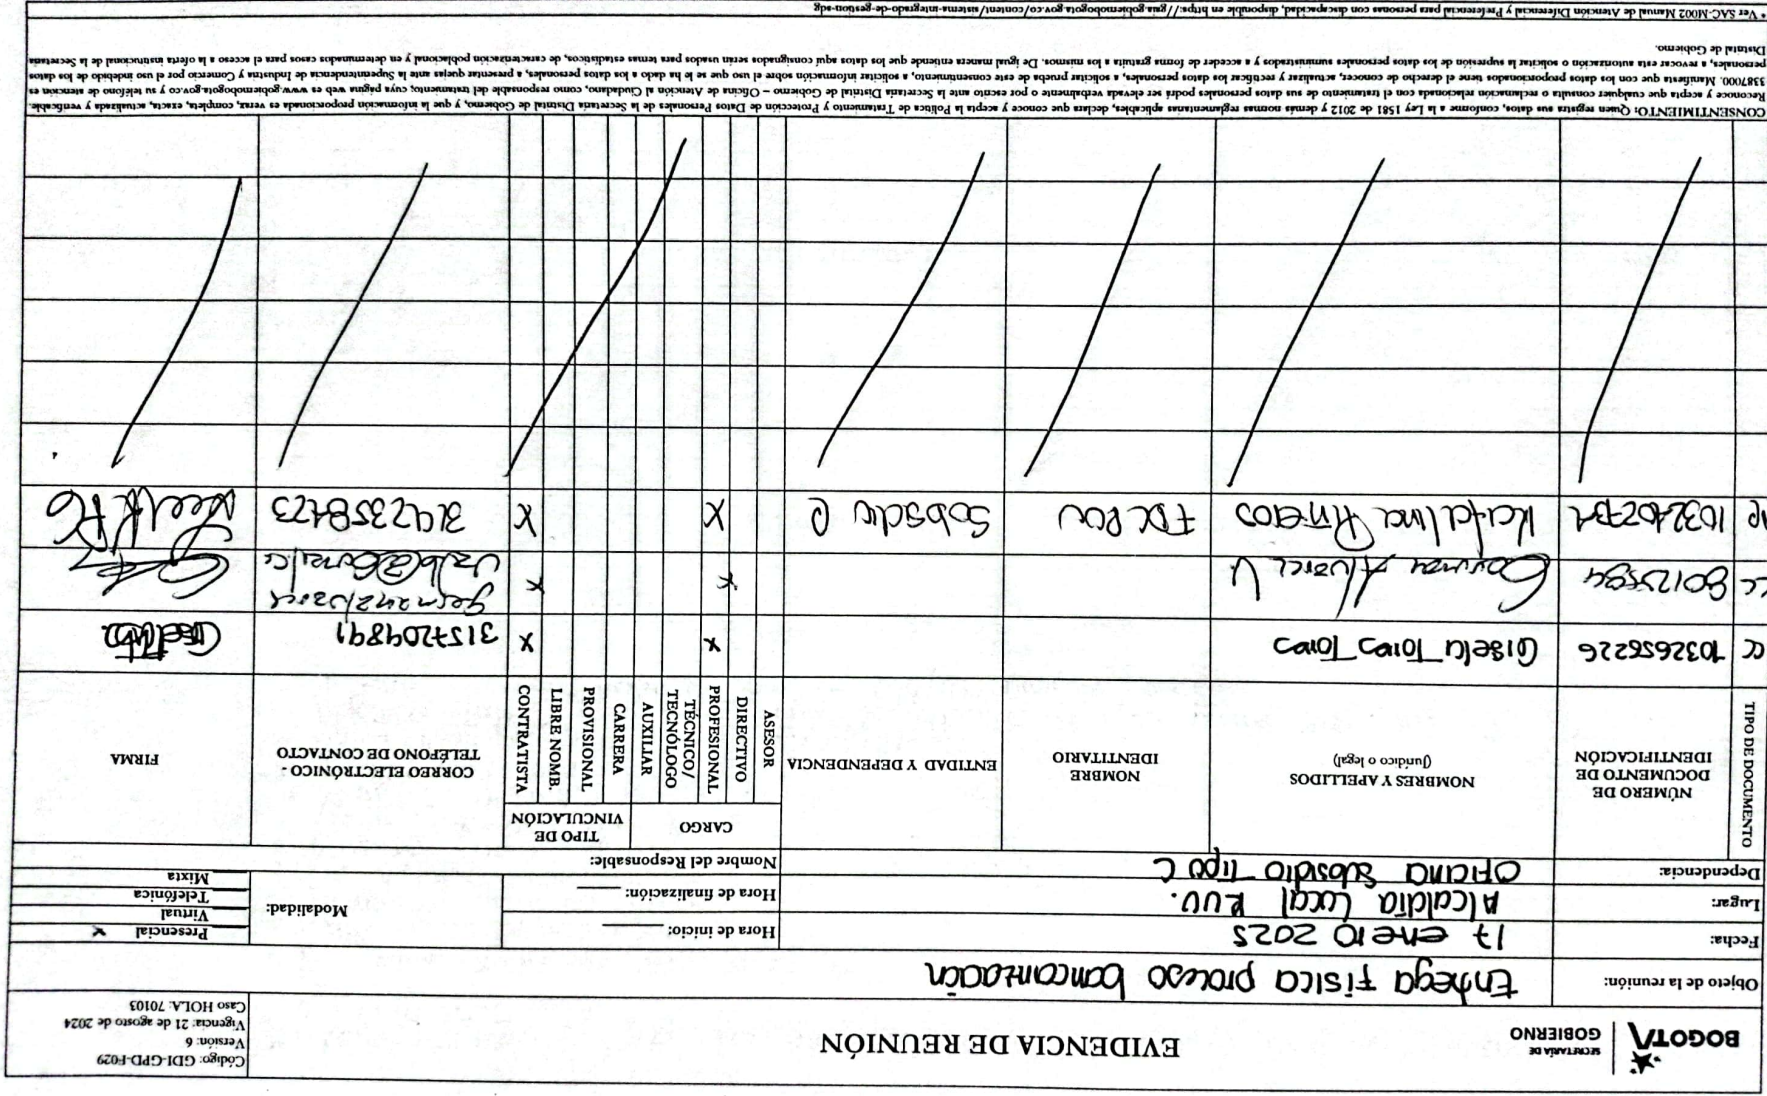 SECRETARÍA DE
BOGOTÁ GOBIERNO
EVIDENCIA DE REUNIÓN
Código: GDI-GPD-F029
Versión: 6
Vigencia: 21 de agosto de 2024
Caso HOLA: 70103
Objeto de la reunión: Entrega Física proceso bancarización
Fecha: 17 enero 2025
Lugar: Alcaldía Local RUU.
Dependencia: Oficina subsidio Tipo C
Hora de inicio:
Hora de finalización:
Nombre del Responsable:
Modalidad:
Presencial x
Virtual
Telefónica
Mixta
TIPO DE DOCUMENTO
NÚMERO DE DOCUMENTO DE IDENTIFICACIÓN
NOMBRES Y APELLIDOS
(Jurídico o legal)
NOMBRE IDENTITARIO
ENTIDAD Y DEPENDENCIA
CARGO
ASESOR
DIRECTIVO
PROFESIONAL
TÉCNICO/ TECNÓLOGO
AUXILIAR
TIPO DE VINCULACIÓN
CARRERA
PROVISIONAL
LIBRE NOMB.
CONTRATISTA
CORREO ELECTRÓNICO - TELÉFONO DE CONTACTO
FIRMA
CC 1032656226 Gisela Torres Torres x x 3157204891
CC 80125594 German Alvarez V. x x
1032402731 Katalina Piñeros Subsidio C X X 3142358473
CONSENTIMIENTO: Quien registra sus datos, conforme a la Ley 1581 de 2012 y demás normas reglamentarias aplicables, declara que conoce y acepta la Política de Tratamiento y Protección de Datos Personales de la Secretaría Distrital de Gobierno, y que la información proporcionada es veraz, completa, exacta, actualizada y verificable.
Reconoce y acepta que cualquier consulta o reclamación relacionada con el tratamiento de sus datos personales podrá ser elevada verbalmente o por escrito ante la Secretaría Distrital de Gobierno – Oficina de Atención al Ciudadano, como responsable del tratamiento, cuya página web es www.gobiernobogota.gov.co y su teléfono de atención es
3387000. Manifiesta que con los datos proporcionados tiene el derecho de conocer, actualizar y rectificar los datos personales, a solicitar prueba de este consentimiento, a solicitar información sobre el uso que se le ha dado a los datos personales, a presentar quejas ante la Superintendencia de Industria y Comercio por el uso indebido de los datos
personales, a revocar esta autorización o solicitar la supresión de los datos personales suministrados y a acceder de forma gratuita a los mismos. De igual manera entiende que los datos aquí consignados serán usados para temas estadísticos, de caracterización poblacional y en determinados casos para el acceso a la oferta institucional de la Secretaría
Distrital de Gobierno.
* Ver SAC-M002 Manual de Atención Diferencial y Preferencial para personas con discapacidad, disponible en https://gaia.gobiernobogota.gov.co/content/sistema-integrado-de-gestion-sdg